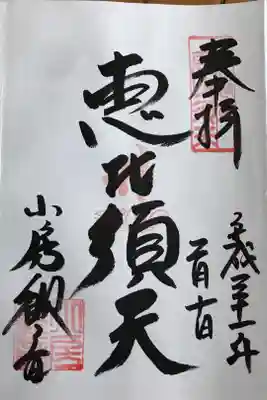 奉拝
平成三十一年
恵比須天
小房観音